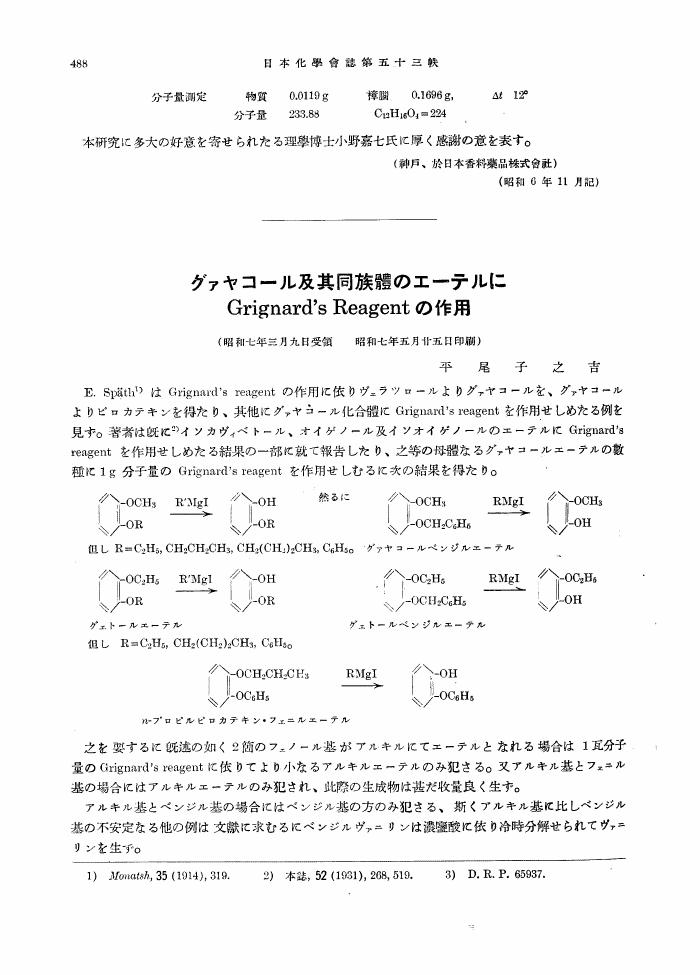 488 日本化學會誌第五十三帙
分子量測定 物質 0.0119 g 樟腦 0.1696 g, Δt 12°
分子量 233.88 C₁₂H₁₆O₄=224
本研究に多大の好意を寄せられたる理學博士小野嘉七氏に厚く感謝の意を表す。
(神戸、於日本香料藥品株式會社)
(昭和 6 年 11 月記)
グァヤコール及其同族體のエーテルに
Grignard's Reagent の作用
(昭和七年三月九日受領 昭和七年五月廿五日印刷)
平尾子之吉
E. Späth¹⁾ は Grignard's reagent の作用に依りヴェラツロールよりグァヤコールを、グァヤコール
よりピロカテキンを得たり、其他にグァヤコール化合體に Grignard's reagent を作用せしめたる例を
見ず。著者は旣に²⁾イソカヴィベトール、オイゲノール及イソオイゲノールのエーテルに Grignard's
reagent を作用せしめたる結果の一部に就て報告したり、之等の母體なるグァヤコールエーテルの數
種に 1 g 分子量の Grignard's reagent を作用せしむるに次の結果を得たり。
-OCH₃ R'MgI -OH 然るに -OCH₃ RMgI -OCH₃
-OR -OR -OCH₂C₆H₅ -OH
但し R=C₂H₅, CH₂CH₂CH₃, CH₂(CH₂)₂CH₃, C₆H₅。 グァヤコールベンジルエーテル
-OC₂H₅ R'MgI -OH -OC₂H₅ RMgI -OC₂H₅
-OR -OR -OCH₂C₆H₅ -OH
グェトールエーテル グェトールベンジルエーテル
但し R=C₂H₅, CH₂(CH₂)₂CH₃, C₆H₅。
-OCH₂CH₂CH₃ RMgI -OH
-OC₆H₅ -OC₆H₅
n-プロピルピロカテキン・フェニルエーテル
之を要するに旣述の如く 2 箇のフェノール基がアルキルにてエーテルとなれる場合は 1 瓦分子
量の Grignard's reagent に依りてより小なるアルキルエーテルのみ犯さる。又アルキル基とフェニル
基の場合にはアルキルエーテルのみ犯され、此際の生成物は甚だ收量良く生ず。
アルキル基とベンジル基の場合にはベンジル基の方のみ犯さる、斯くアルキル基に比しベンジル
基の不安定なる他の例は文獻に求むるにベンジルヴァニリンは濃鹽酸に依り冷時分解せられてヴァニ
リンを生ず。
1) Monatsh, 35 (1914), 319. 2) 本誌, 52 (1931), 268, 519. 3) D. R. P. 65937.